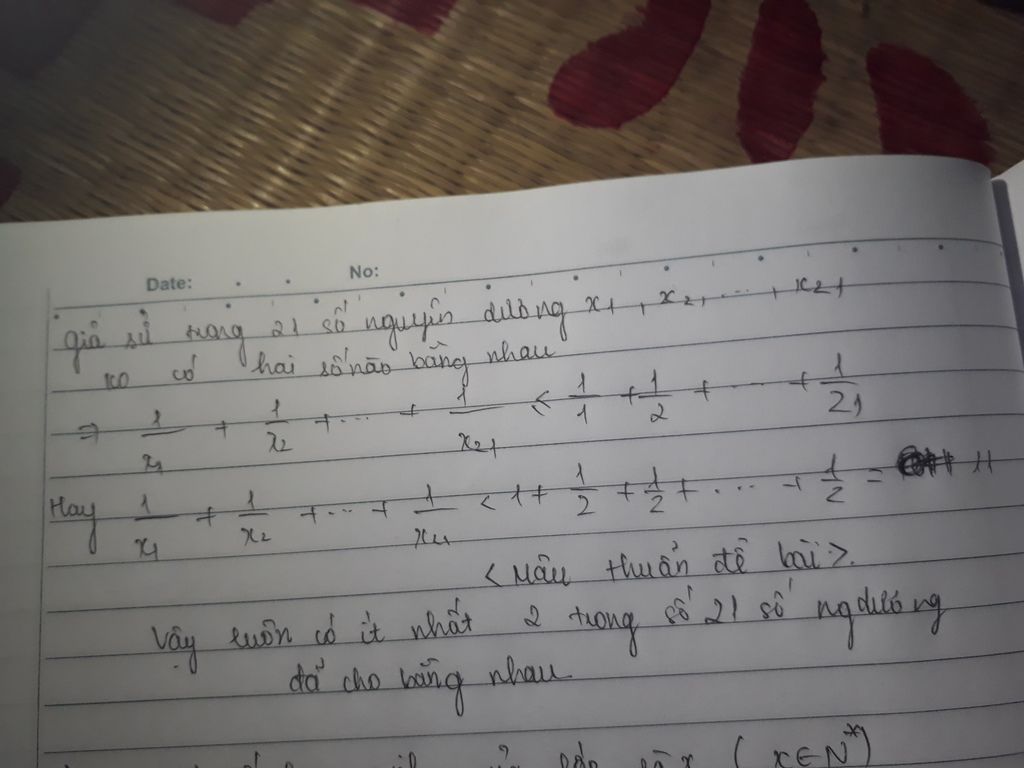 Date: No:
giả sử trong 21 số nguyên dương x1, x2, ..., x21
ko có hai số nào bằng nhau
⇒ 1/x1 + 1/x2 + ... + 1/x21 < 1/1 + 1/2 + ... + 1/21
Hay 1/x1 + 1/x2 + ... + 1/x21 < 1 + 1/2 + 1/2 + ... + 1/2 = 11
< Mâu thuẩn đề bài >.
Vậy luôn có ít nhất 2 trong số 21 số ng dương
đã cho bằng nhau
(x∈N*)